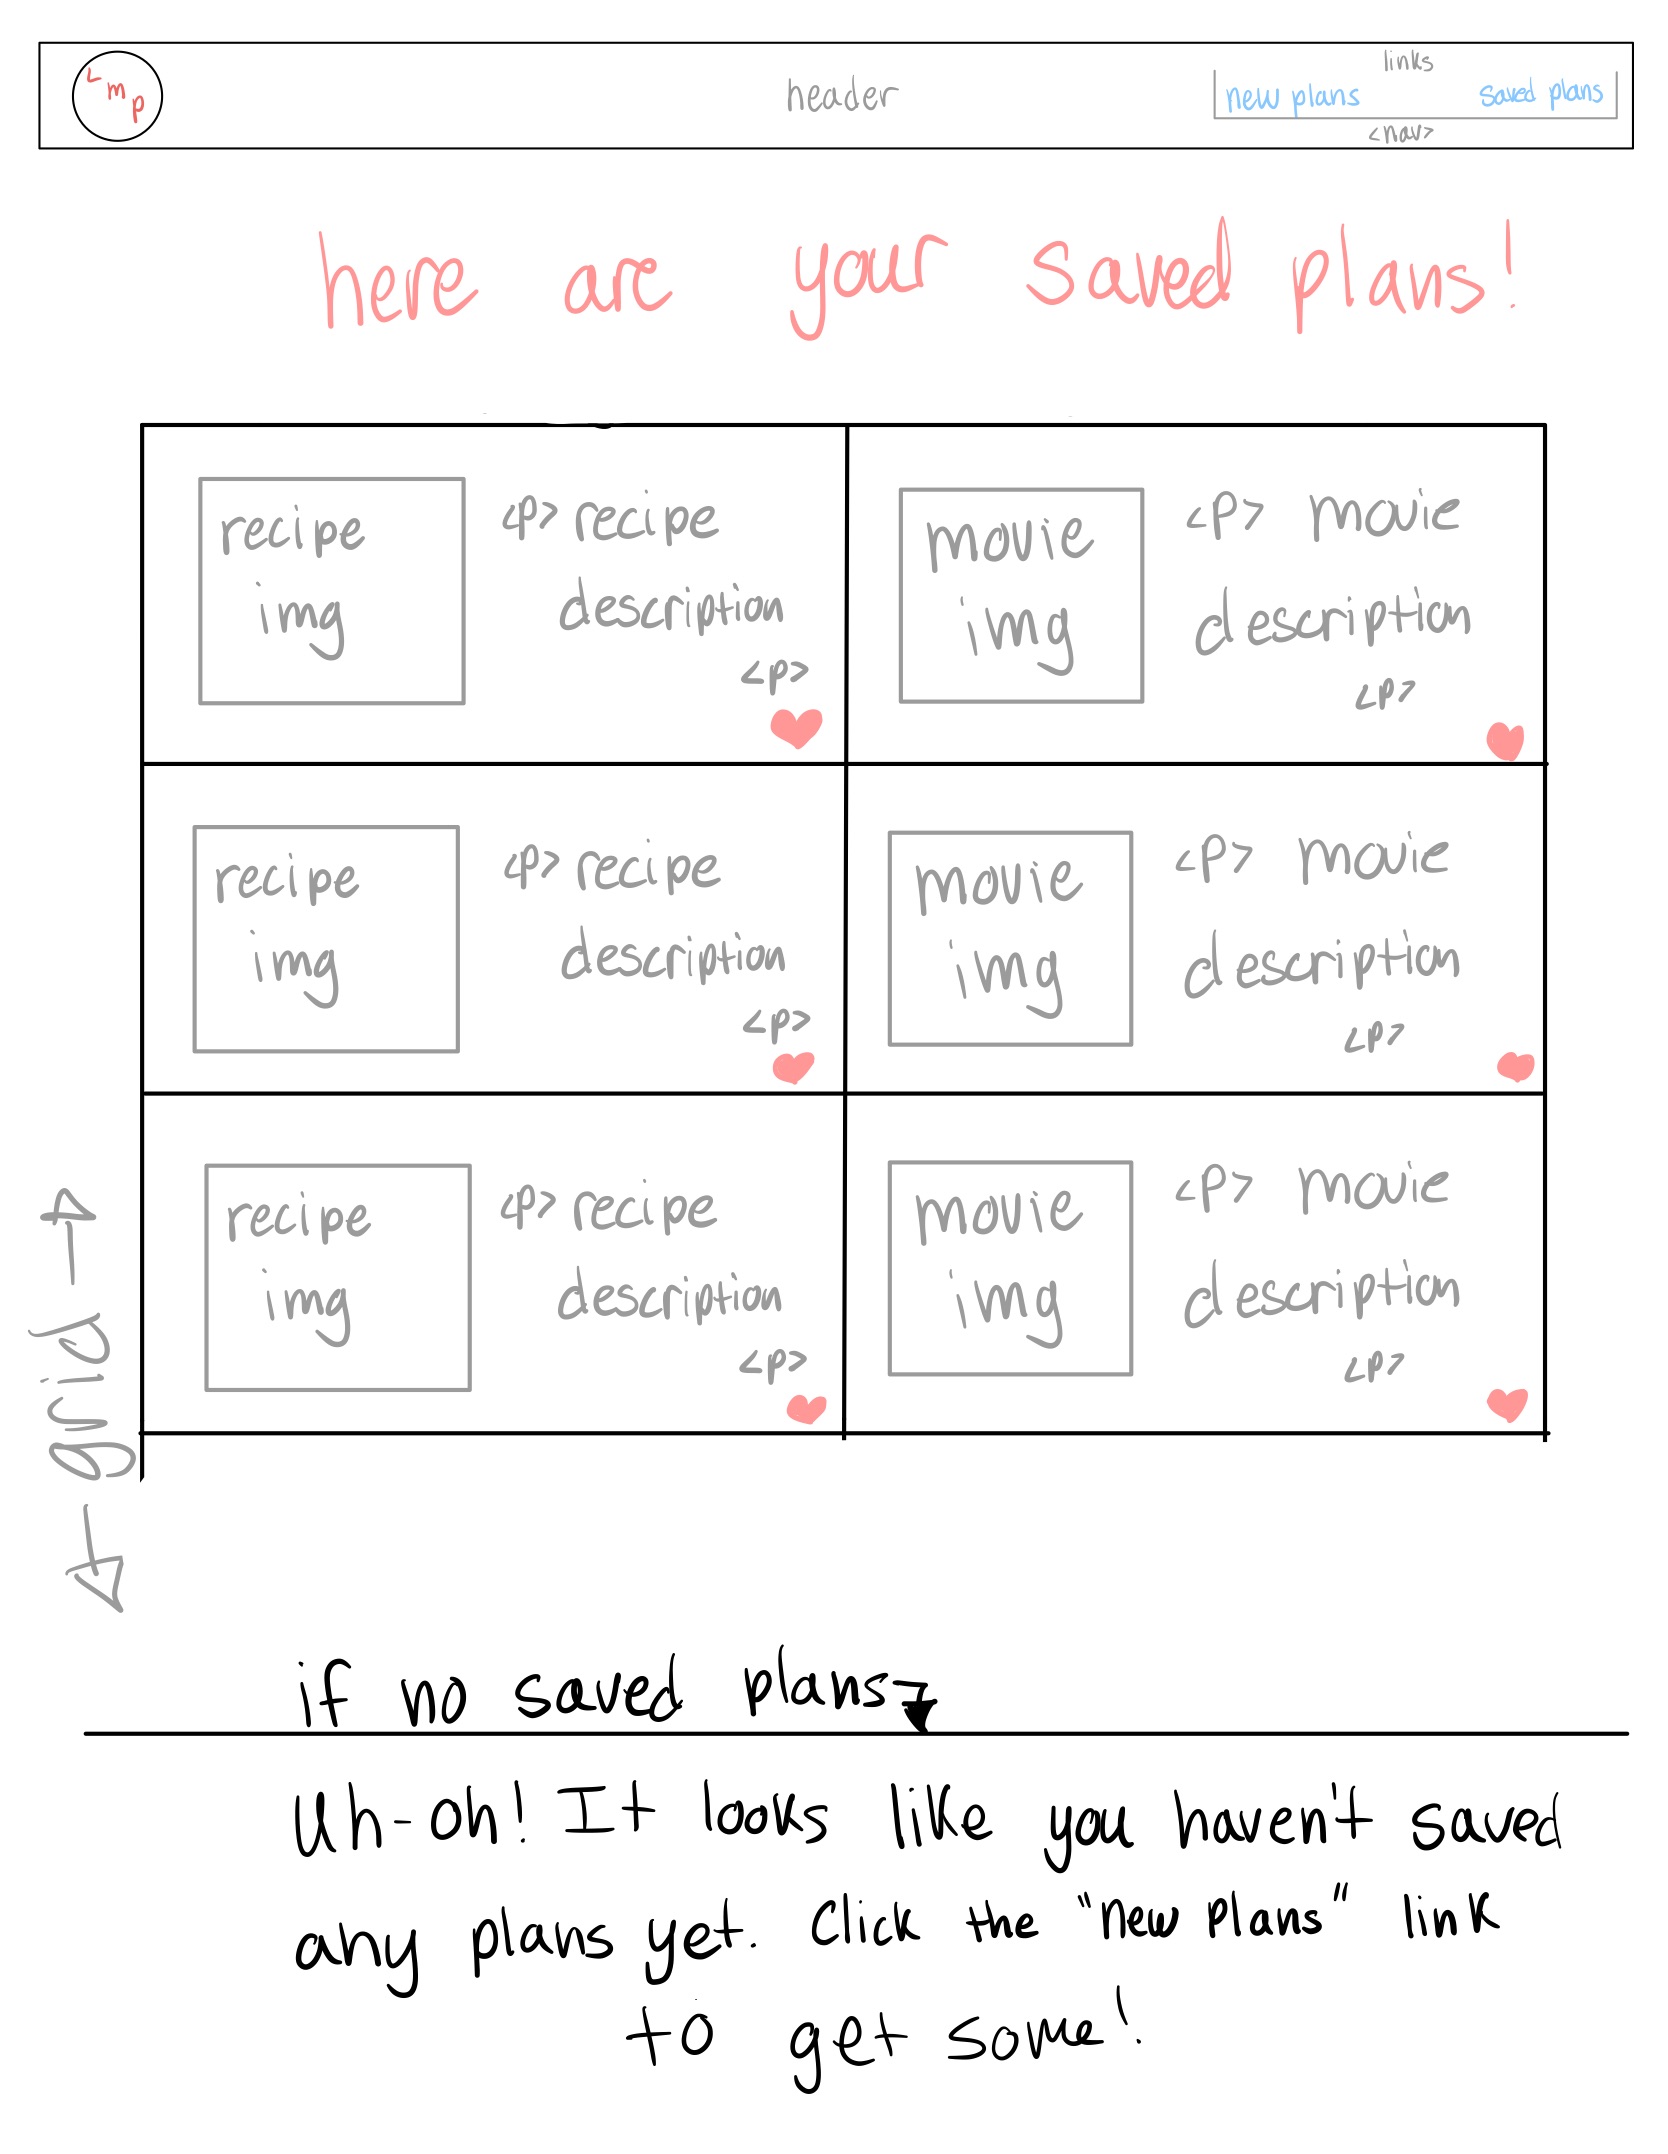 header
links
new plans saved plans
<nav>
here are your saved plans!
recipe
img
<p> recipe
description
<p>
movie
img
<p> movie
description
<p>
recipe
img
<p> recipe
description
<p>
movie
img
<p> movie
description
<p>
recipe
img
<p> recipe
description
<p>
movie
img
<p> movie
description
<p>
grid
if no saved plans
Uh-oh! It looks like you haven't saved
any plans yet. Click the "New Plans" link
to get some!